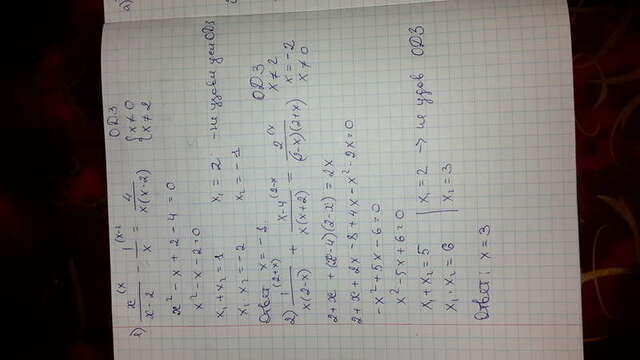 а)
1) x(x / x-2 - 1(x-2 / x = 4 / x(x-2)
ОДЗ
{x≠0
{x≠2
x² - x + 2 - 4 = 0
x² - x - 2 = 0
x₁ + x₂ = 1
x₁ · x₂ = -2
x₁ = 2 - не удовл
ОДЗ
x₂ = -1
Ответ: x = -1
2) 1(2+x) / x(2-x) + x-4(2-x / x(x+2) = 2(x / (2-x)(2+x)
ОДЗ
x≠2
x=-2
x≠0
2+x + (x-4)(2-x) = 2x
2+x+2x-8+4x-x²-2x=0
-x²+5x-6=0
x²-5x+6=0
x₁+x₂=5
x₁·x₂=6
x₁=2 → не удов ОДЗ
x₂=3
Ответ: x=3